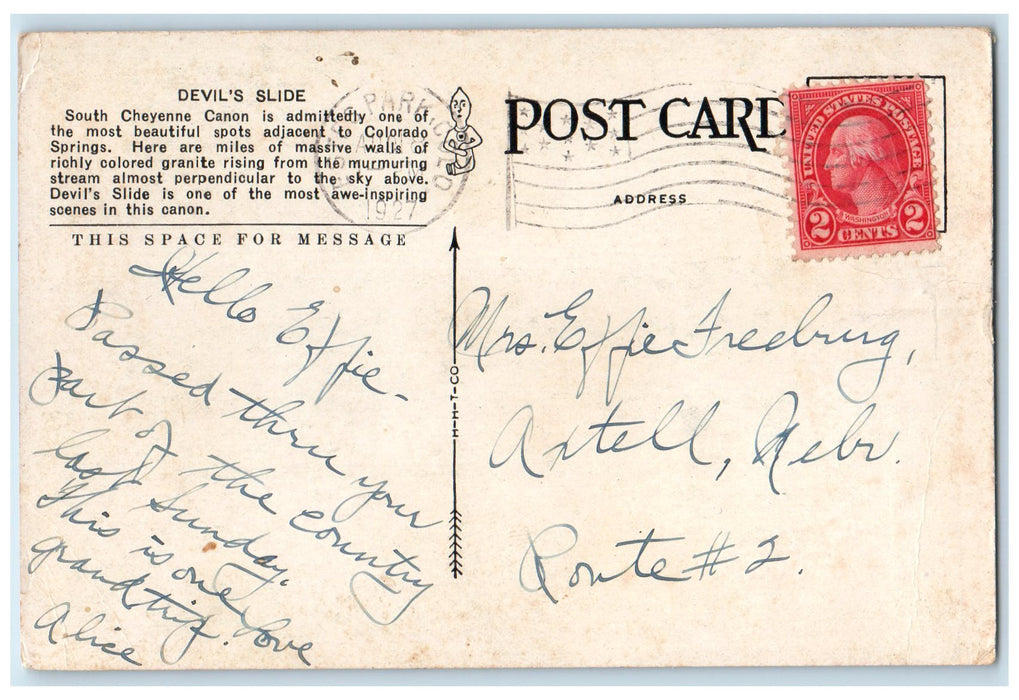 DEVIL'S SLIDE
South Cheyenne Canon is admittedly one of
the most beautiful spots adjacent to Colorado
Springs. Here are miles of massive walls of
richly colored granite rising from the murmuring
stream almost perpendicular to the sky above.
Devil's Slide is one of the most awe-inspiring
scenes in this canon.
THIS SPACE FOR MESSAGE
Hello Effie-
Passed thru your
part of the country
last Sunday.
This is one
grand trip. Love
Alice
H-H-T-CO
PARK
1927
POST CARD
ADDRESS
UNITED STATES POSTAGE
WASHINGTON
2 CENTS 2
Mrs. Effie Fredburg,
Axtell, Nebr.
Route #2.